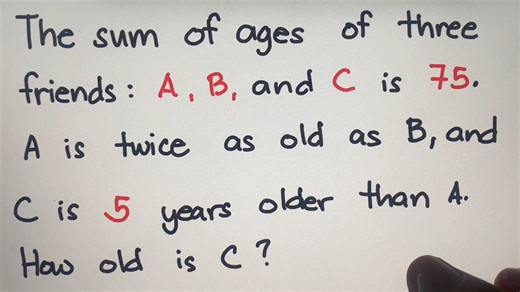 The sum of ages of three
friends: A, B, and C is 75.
A is twice as old as B, and
C is 5 years older than A.
How old is C?